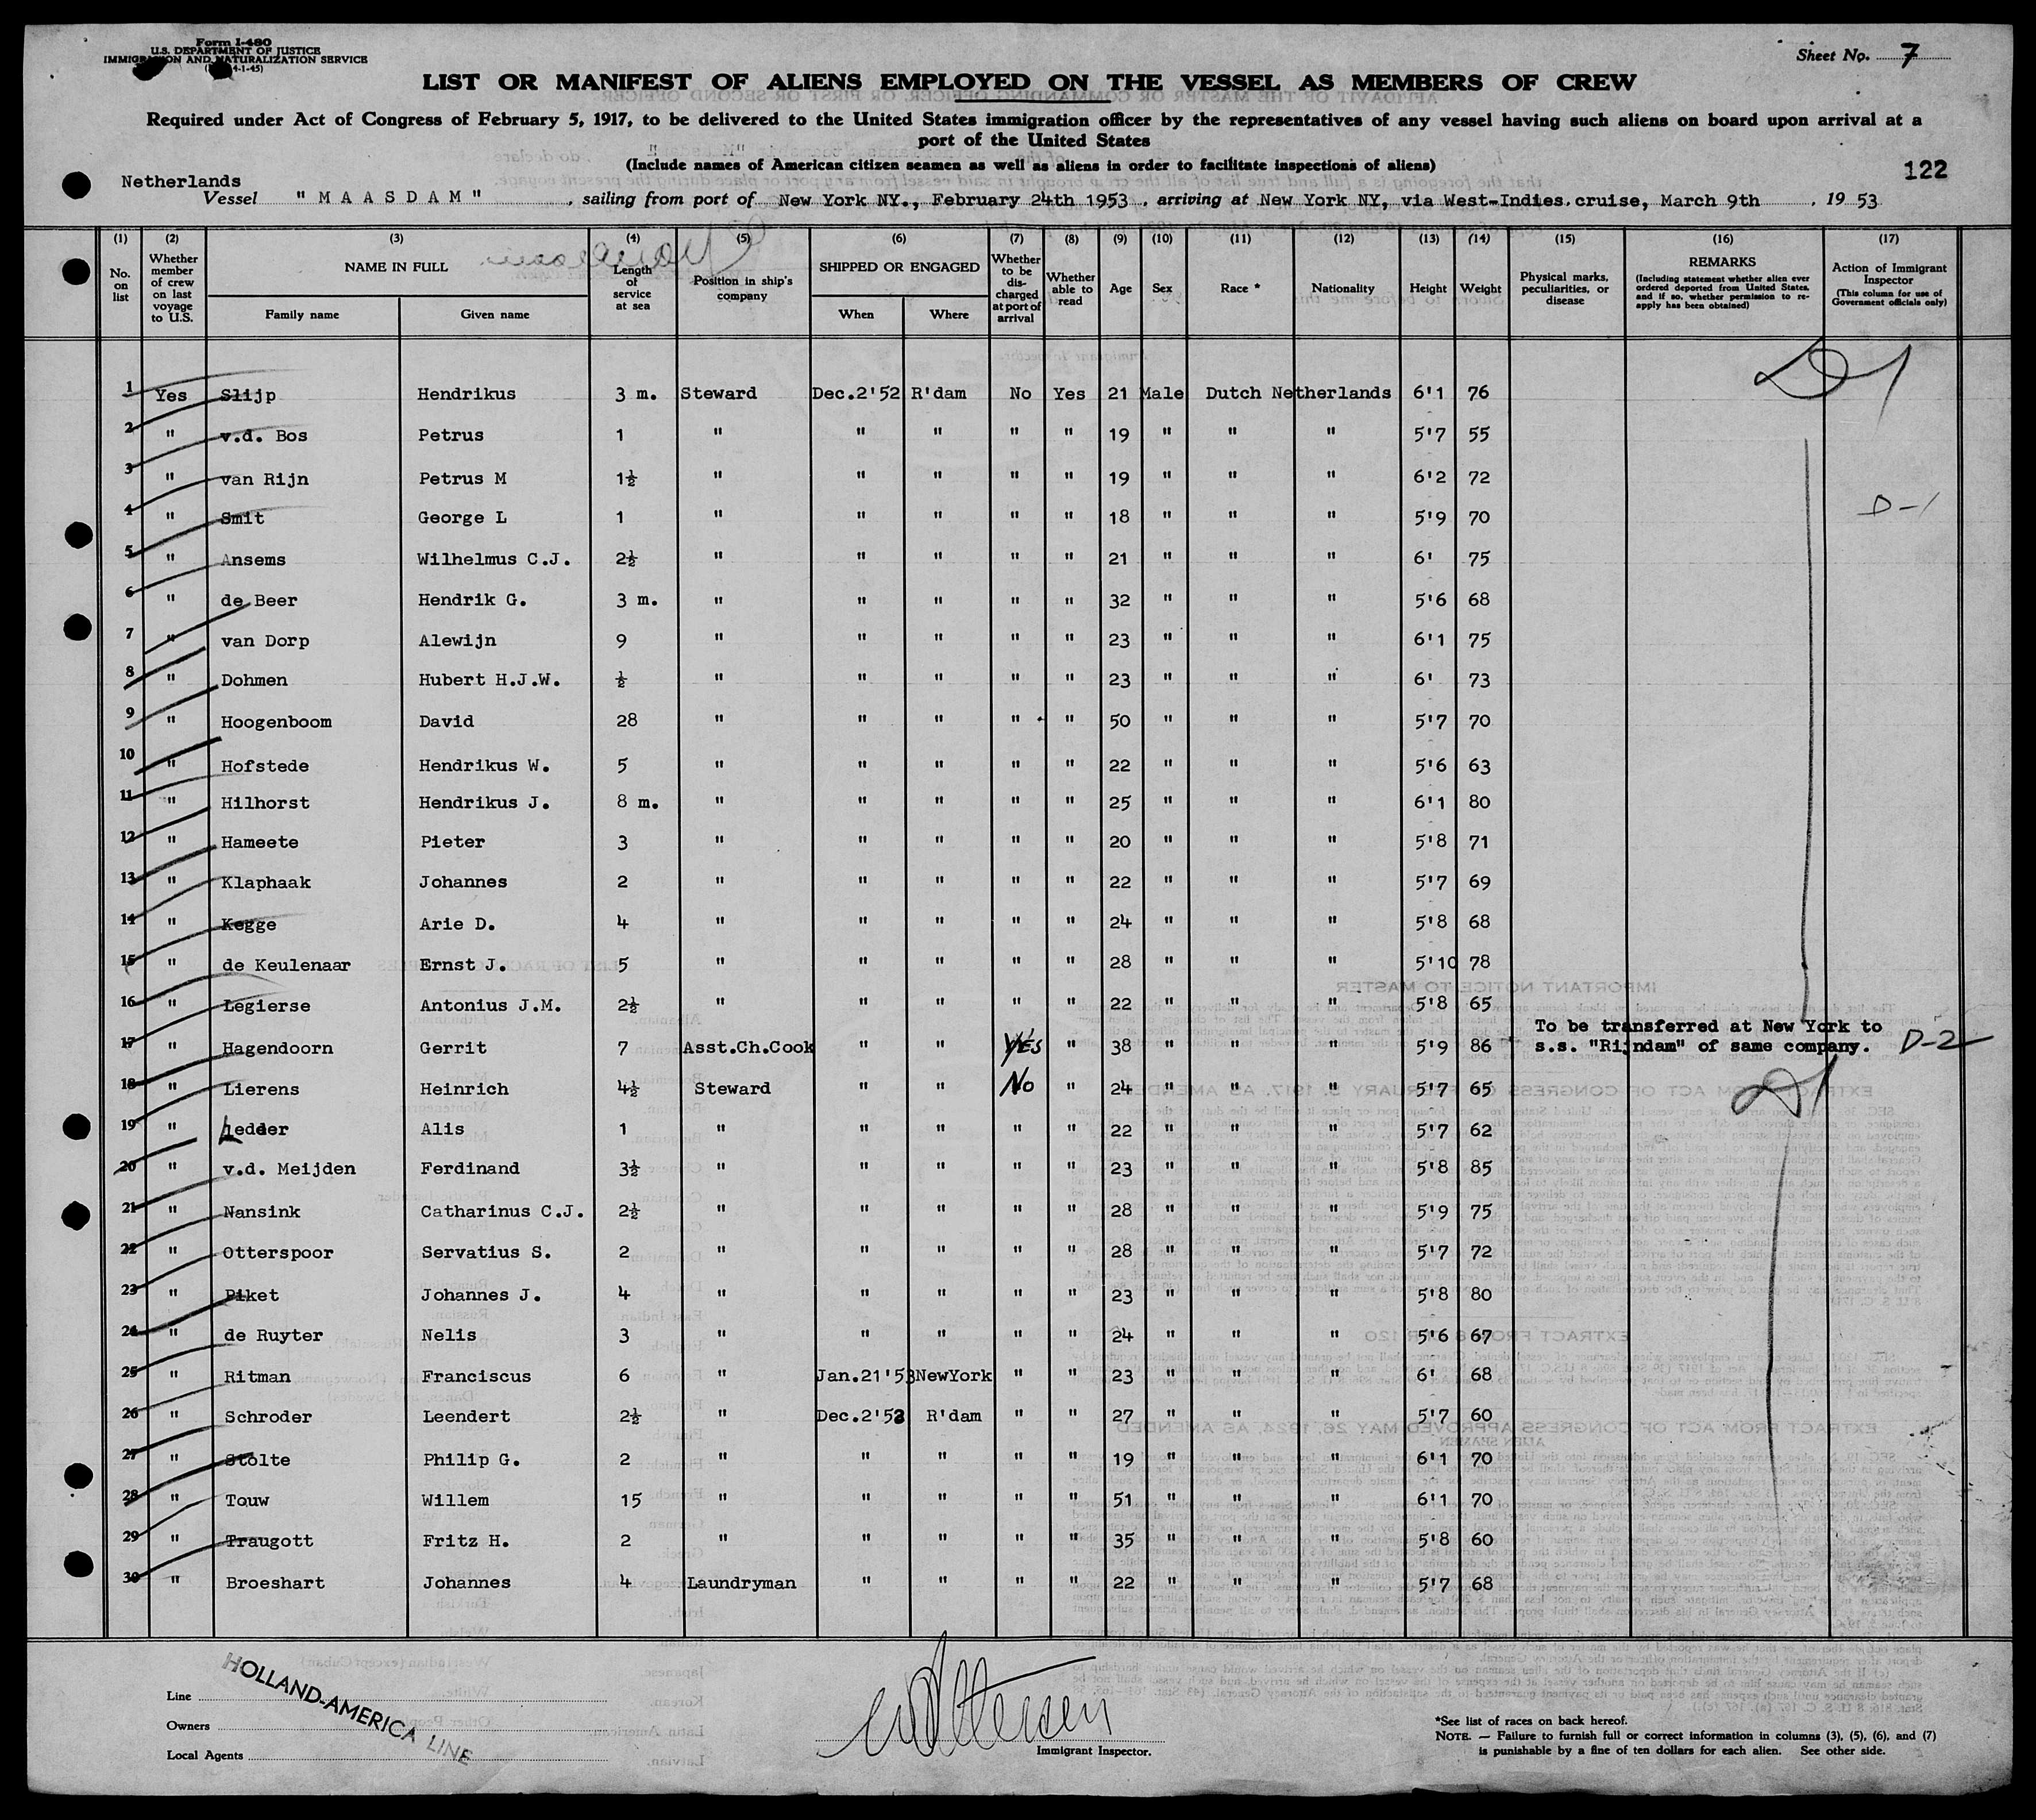 Form I-480
U.S. DEPARTMENT OF JUSTICE
IMMIGRATION AND NATURALIZATION SERVICE
4-1-45)
Sheet No. 7
LIST OR MANIFEST OF ALIENS EMPLOYED ON THE VESSEL AS MEMBERS OF CREW
Required under Act of Congress of February 5, 1917, to be delivered to the United States immigration officer by the representatives of any vessel having such aliens on board upon arrival at a
port of the United States
(Include names of American citizen seamen as well as aliens in order to facilitate inspections of aliens)
122
Netherlands
Vessel "MAASDAM", sailing from port of New York NY., February 24th 1953, arriving at New York NY, via West-Indies cruise, March 9th, 19 53
(1) (2) (3) (4) (5) (6) (7) (8) (9) (10) (11) (12) (13) (14) (15) (16) (17)
No. on list | Whether member of crew on last voyage to U.S. | NAME IN FULL | Length of service at sea | Position in ship's company | SHIPPED OR ENGAGED | Whether to be discharged at port of arrival | Whether able to read | Age | Sex | Race * | Nationality | Height | Weight | Physical marks, peculiarities, or disease | REMARKS (Including statement whether alien ever ordered deported from United States, and if so, whether permission to re-apply has been obtained) | Action of Immigrant Inspector (This column for use of Government officials only)
Family name | Given name | When | Where
D-1
1 Yes Slijp Hendrikus 3 m. Steward Dec.2'52 R'dam No Yes 21 Male Dutch Netherlands 6'1 76
2 " v.d. Bos Petrus 1 " " " " " 19 " " " 5'7 55
3 " van Rijn Petrus M 1½ " " " " " 19 " " " 6'2 72
4 " Smit George L 1 " " " " " 18 " " " 5'9 70 D-1
5 " Ansems Wilhelmus C.J. 2½ " " " " " 21 " " " 6' 75
6 " de Beer Hendrik G. 3 m. " " " " " 32 " " " 5'6 68
7 " van Dorp Alewijn 9 " " " " " 23 " " " 6'1 75
8 " Dohmen Hubert H.J.W. ½ " " " " " 23 " " " 6' 73
9 " Hoogenboom David 28 " " " " " 50 " " " 5'7 70
10 " Hofstede Hendrikus W. 5 " " " " " 22 " " " 5'6 63
11 " Hilhorst Hendrikus J. 8 m. " " " " " 25 " " " 6'1 80
12 " Hameete Pieter 3 " " " " " 20 " " " 5'8 71
13 " Klaphaak Johannes 2 " " " " " 22 " " " 5'7 69
14 " Kegge Arie D. 4 " " " " " 24 " " " 5'8 68
15 " de Keulenaar Ernst J. 5 " " " " " 28 " " " 5'10 78
16 " Legierse Antonius J.M. 2½ " " " " " 22 " " " 5'8 65
To be transferred at New York to
17 " Hagendoorn Gerrit 7 Asst.Ch.Cook " " YES " 38 " " " 5'9 86 s.s. "Rijndam" of same company. D-2
18 " Lierens Heinrich 4½ Steward " " No " 24 " " " 5'7 65 D1
19 " Ledder Alis 1 " " " " " 22 " " " 5'7 62
20 " v.d. Meijden Ferdinand 3½ " " " " " 23 " " " 5'8 85
21 " Nansink Catharinus C.J. 2½ " " " " " 28 " " " 5'9 75
22 " Otterspoor Servatius S. 2 " " " " " 28 " " " 5'7 72
23 " Piket Johannes J. 4 " " " " " 23 " " " 5'8 80
24 " de Ruyter Nelis 3 " " " " " 24 " " " 5'6 67
25 " Ritman Franciscus 6 " Jan.21'53 NewYork " " 23 " " " 6' 68
26 " Schroder Leendert 2½ " Dec.2'52 R'dam " " 27 " " " 5'7 60
27 " Stolte Philip G. 2 " " " " " 19 " " " 6'1 70
28 " Touw Willem 15 " " " " " 51 " " " 6'1 70
29 " Traugott Fritz H. 2 " " " " " 35 " " " 5'8 60
30 " Broeshart Johannes 4 Laundryman " " " " 22 " " " 5'7 68
HOLLAND-AMERICA LINE
Line
Owners
Local Agents
Immigrant Inspector.
*See list of races on back hereof.
NOTE. — Failure to furnish full or correct information in columns (3), (5), (6), and (7)
is punishable by a fine of ten dollars for each alien. See other side.